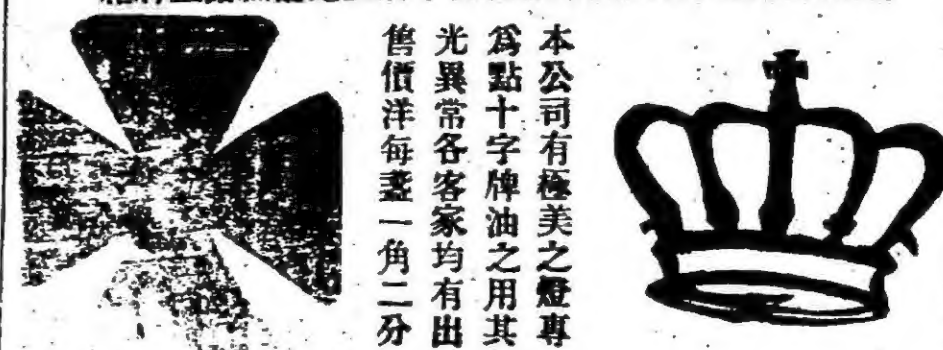 本公司有極美之燈專
爲點十字牌油之用其
光異常各客家均有出
售價洋每盞一角二分